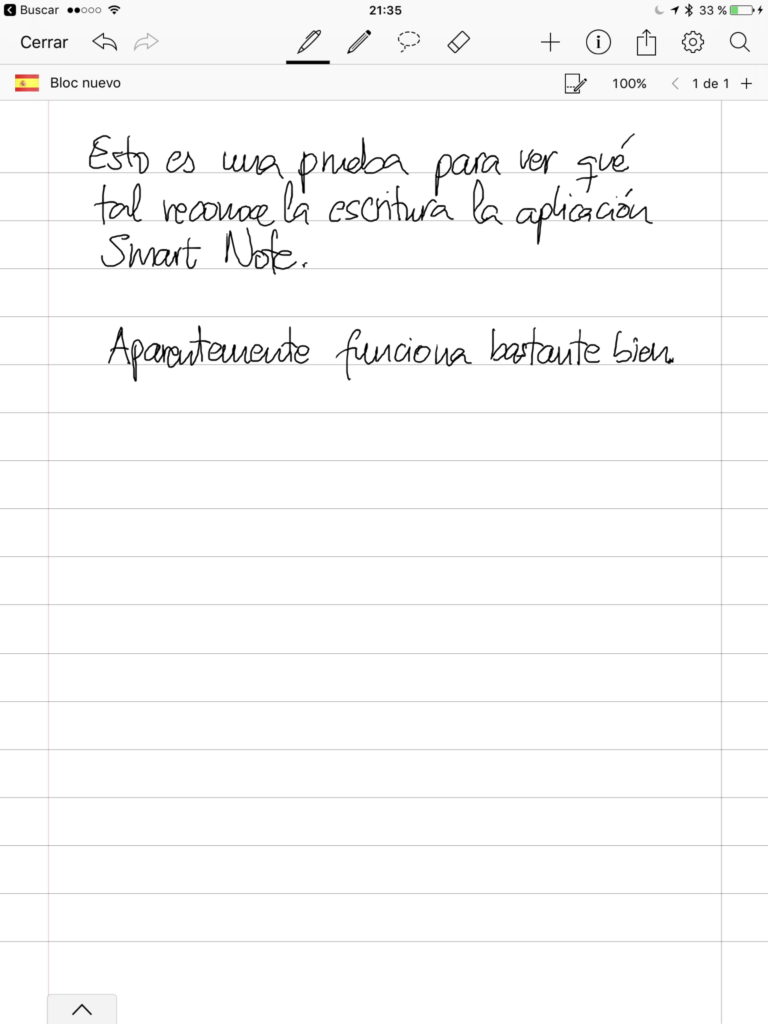 Buscar 21:35 33 %
Cerrar
Bloc nuevo 100% 1 de 1
Esto es una prueba para ver qué
tal reconoce la escritura la aplicación
Smart Note.
Aparentemente funciona bastante bien.